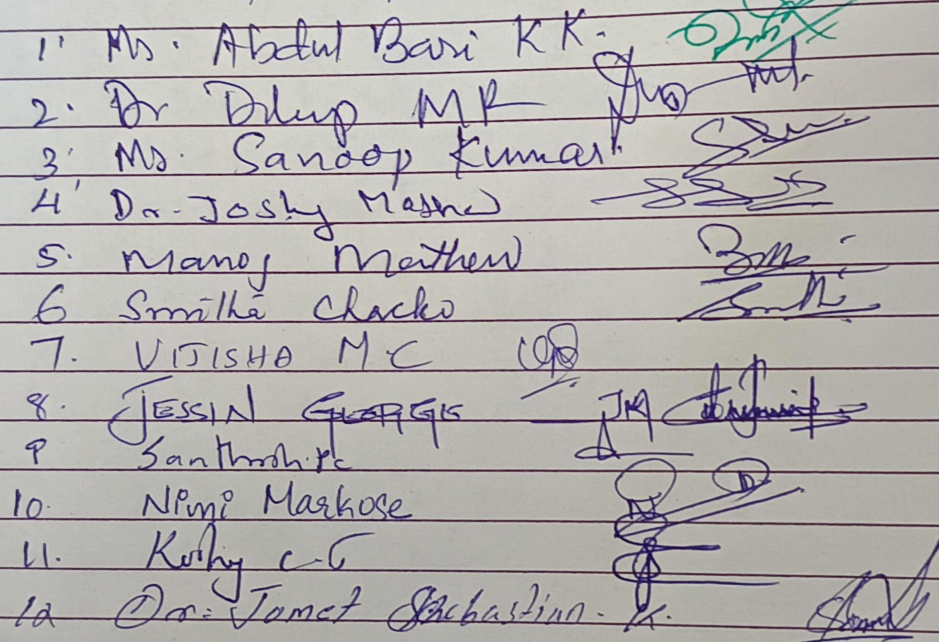 1. Mr. Abdul Bari K K.
2. Dr Dilup MR
3. Mr. Sanoop Kumar
4. Dr. Joshy Mathew
5. Manoj Mathew
6 Smitha Chacko
7. VIJISHA M C
8. JESSIN GEORGE
9 Santhosh. P C
10. Nimi Markose
11. Koshy C.C
12 Dr. Jomet Sebastian. K.